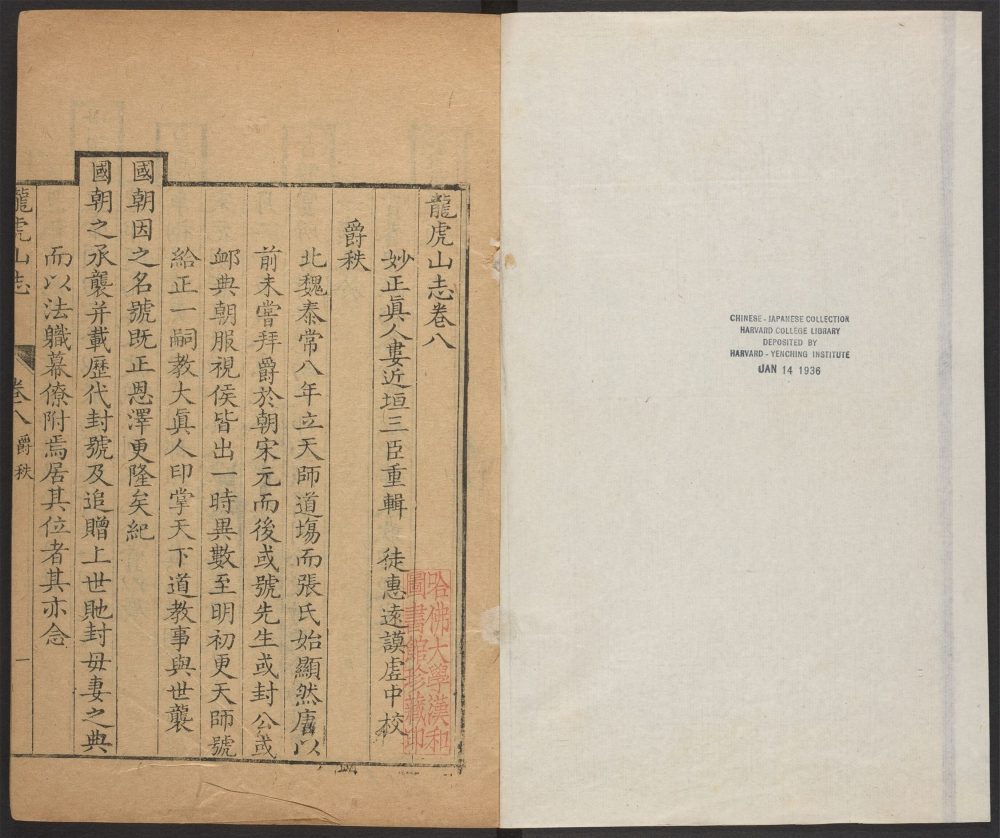 龍虎山志卷八
妙正眞人婁近垣三臣重輯 徒惠遠謨虛中校
爵秩
北魏泰常八年立天師道場而張氏始顯然唐以
前未嘗拜爵於朝宋元而後或號先生或封公或
䘏典朝服視侯皆出一時異數至明初更天師號
給正一嗣教大眞人印掌天下道教事與世襲
國朝因之名號既正恩澤更隆矣紀
國朝之承襲并載歷代封號及追贈上世貤封母妻之典
而以法職幕僚附焉居其位者其亦念
龍虎山志 卷八 爵秩 一
哈佛大學漢和
圖書館珍藏印
CHINESE - JAPANESE COLLECTION
HARVARD COLLEGE LIBRARY
DEPOSITED BY
HARVARD - YENCHING INSTITUTE
JAN 14 1936